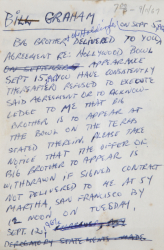 Bill GRAHAM
BIG BROTHER DELIVERED TO YOU
AGREEMENT RE HOLLYWOOD BOWL
APPEARANCE
SEPT 15. YOU HAVE CONSISTENTLY
THEREAFTER REFUSED TO EXECUTE
SAID AGREEMENT OR TO ACKNOW-
LEDGE TO ME THAT BIG
BROTHER IS TO APPEAR AT
THE BOWL ON THE TERMS
STATED THEREIN. PLEASE TAKE
NOTICE THAT THE OFFER OF
BIG BROTHER TO APPEAR IS
WITHDRAWN IF SIGNED CONTRACT
NOT DELIVERED TO ME AT 54
MARTHA, SAN FRANCISCO BY
12 NOON, ON TUESDAY,
SEPT. 12,
BY STATE AGENTS MADE